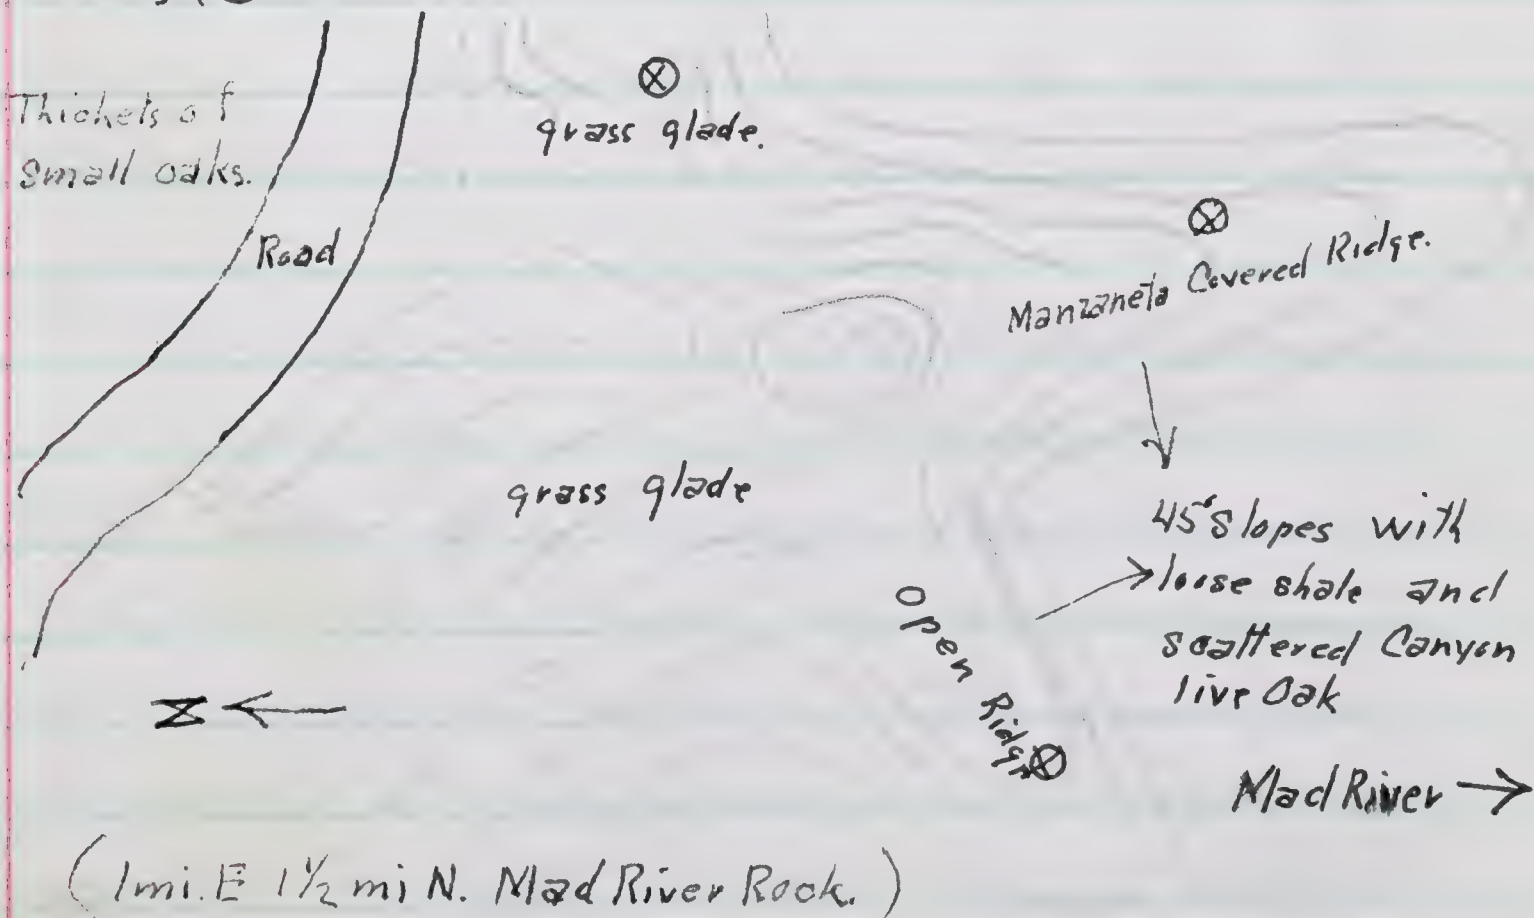 Thickets of
Small oaks.
grass glade.
Road
Manzaneta Covered Ridge.
grass glade
45° Slopes with
loose shale and
scattered Canyon
live Oak
Open Ridge
N
Mad River
(1 mi. E 1½ mi N. Mad River Rock.)